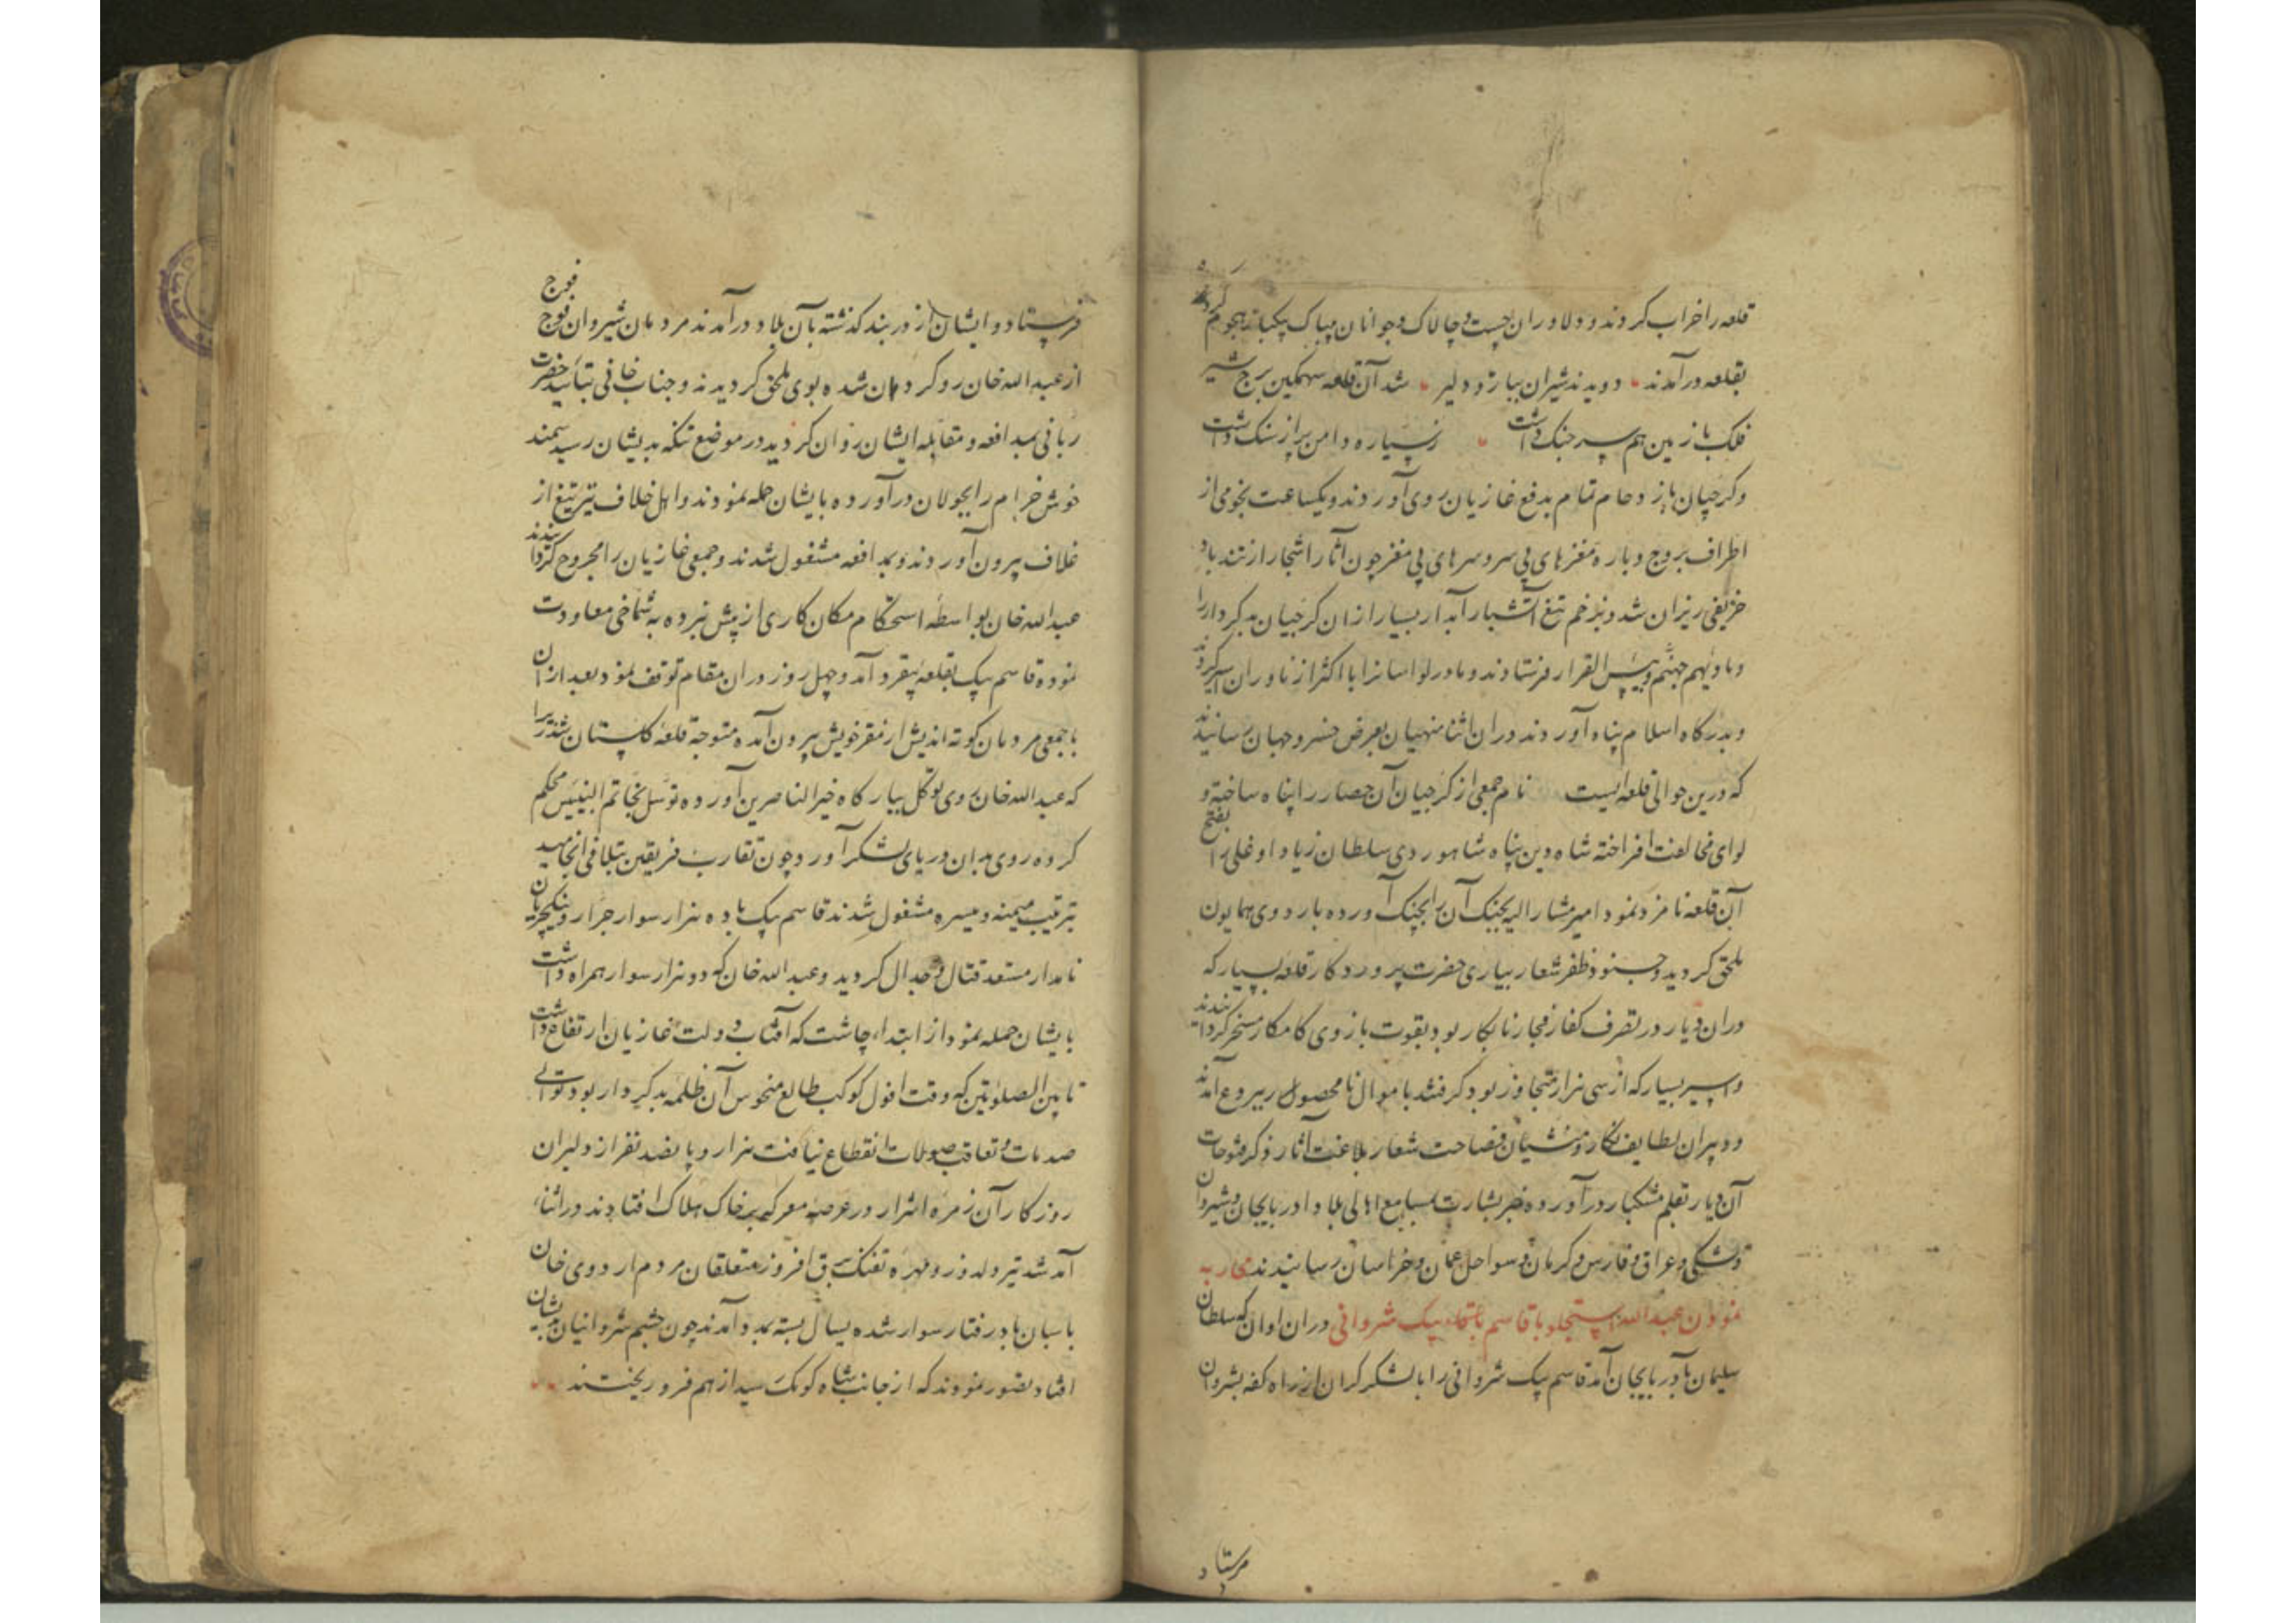 قلعه را خراب کردند و دلاوران چست و چالاک و جوانان بیباک بیکبار هجوم کرده
بقلعه درآمدند دویدند شیران بیاره دلیر شد آن قلعه سهمگین برج شیر
فلک با زمین هم سر جنک داشت ز سیاره دامن پر از سنک داشت
و کرجیان بازدحام تمام بدفع غازیان روی آوردند و یکساعت نجومی از
اطراف بروج و باره مغزهای بی سر و سرهای بی مغز چون آثار اشجار از تند باد
خریفی ریزان شد و بزخم تیغ آتشبار آبدار بسیار از ان کرجیان بدکردار را
و ماویهم جهنم و بیس القرار فرستادند و مادر لواسانرا با اکثر ازناوران اسیر کردند
و بدرکاه اسلام پناه آوردند در ان اثنا منهیان بعرض خسرو جهان رسانیدند
که درین حوالی قلعه ایست نام جمعی از کرجیان آن حصار را پناه ساخته و
لوای مخالفت افراخته شاه دین پناه شاهوردی سلطان زیاد اوغلی را بفتح
آن قلعه نامزد نمود امیر مشارالیه بجنک آن را بچنک آورده باردوی همایون
ملحق کردید و جنود ظفر شعار بیاری حضرت پروردکار قلعه بسیار که
دران دیار در تصرف کفار فجار نابکار بود بقوت بازوی کامکار مسخر کردانیدند
و اسیر بسیار که از سی هزار متجاوز بود کرفتند با موال نامحصول بیرون آمدند
و دبیران لطایف نکار و منشیان فصاحت شعار بلاغت آثار ذکر فتوحات
آن دیار بقلم مشکبار درآورده خبر بشارت بمسامع اهالی بلاد ادربایجان و شیروان
و شکی و عراق و فارس و کرمان و سواحل عمان و خراسان رسانیدند محاربه
نمودن عبدالله استجلو با قاسم بیک شروانی دران اوان که سلطان
سلیمان بآدربایجان آمد قاسم بیک شروانی را با لشکر کران از راه کفه بشروان
فرستاد
فرستاد و ایشان از دربند کذشته بآن بلاد درآمدند مردمان شیروان فوج فوج
از عبدالله خان روکردان شده بوی ملحق کردیدند و جناب خانی بتأیید حضرت
ربانی بمدافعه و مقابله ایشان روان کردید در موضع تنکه بدیشان رسید سمند
خوش خرام را بجولان درآورده بایشان حمله نمودند و اهل خلاف نیز تیغ از
غلاف بیرون آوردند و بمدافعه مشغول شدند و جمعی غازیان را مجروح کردانیدند
عبدالله خان بواسطه استحکام مکان کاری از پیش نبرده به شماخی معاودت
نموده قاسم بیک بقلعه بیقرد آمد و چهل روز دران مقام توقف نمود بعد از ان
با جمعی مردمان کوته اندیش از مقر خویش بیرون آمده متوجه قلعه کلستان شد زیرا
که عبدالله خان روی توکل ببارکاه خیر الناصرین آورده توسل بخاتم النبیین محکم
کرده روی بدان دریای لشکر آورد چون تقارب فریقین بتلاقی انجامید
بترتیب میمنه و میسره مشغول شدند قاسم بیک با ده هزار سوار جرار و ینکچریان
نامدار مستعد قتال و جدال کردید و عبدالله خان که دو هزار سوار همراه داشت
بایشان حمله نمود از ابتداء چاشت که آفتاب دولت غازیان ارتفاع داشت
تا بین الصلوتین که وقت افول کوکب طالع منحوس آن ظلمه بدکردار بود توالی
صدمات و تعاقب صولات انقطاع نیافت هزار و پانصد نفر از دلیران
روزکار آن زمره اشرار در عرصه معرکه بر خاک هلاک افتادند در اثناء
آمد شد تیر دلدوز و مهره تفنک برق افروز متعلقان مردم اردوی خان
باسبان باد رفتار سوار شده یسال بسته بمدد آمدند چون چشم شروانیان بدیشان
افتاد تصور نمودند که از جانب شاه کومک رسید از هم فرو ریختند